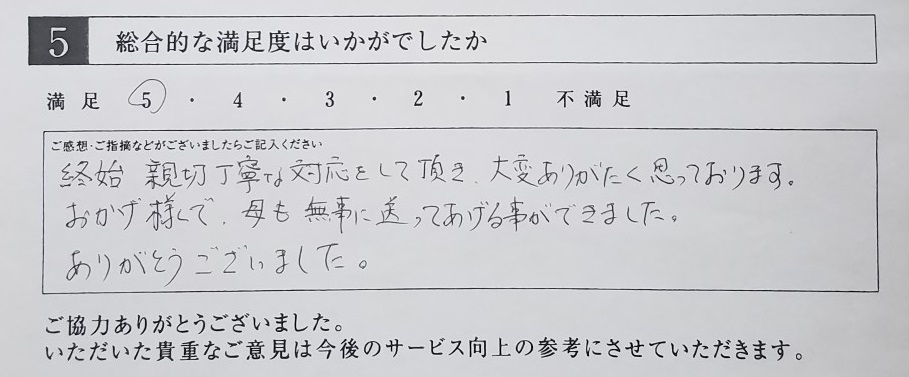 5 総合的な満足度はいかがでしたか
満足 5 ・ 4 ・ 3 ・ 2 ・ 1 不満足
ご感想・ご指摘などがございましたらご記入ください
終始 親切丁寧な対応をして頂き、大変ありがたく思っております。
おかげ様で、母も無事に送ってあげる事ができました。
ありがとうございました。
ご協力ありがとうございました。
いただいた貴重なご意見は今後のサービス向上の参考にさせていただきます。